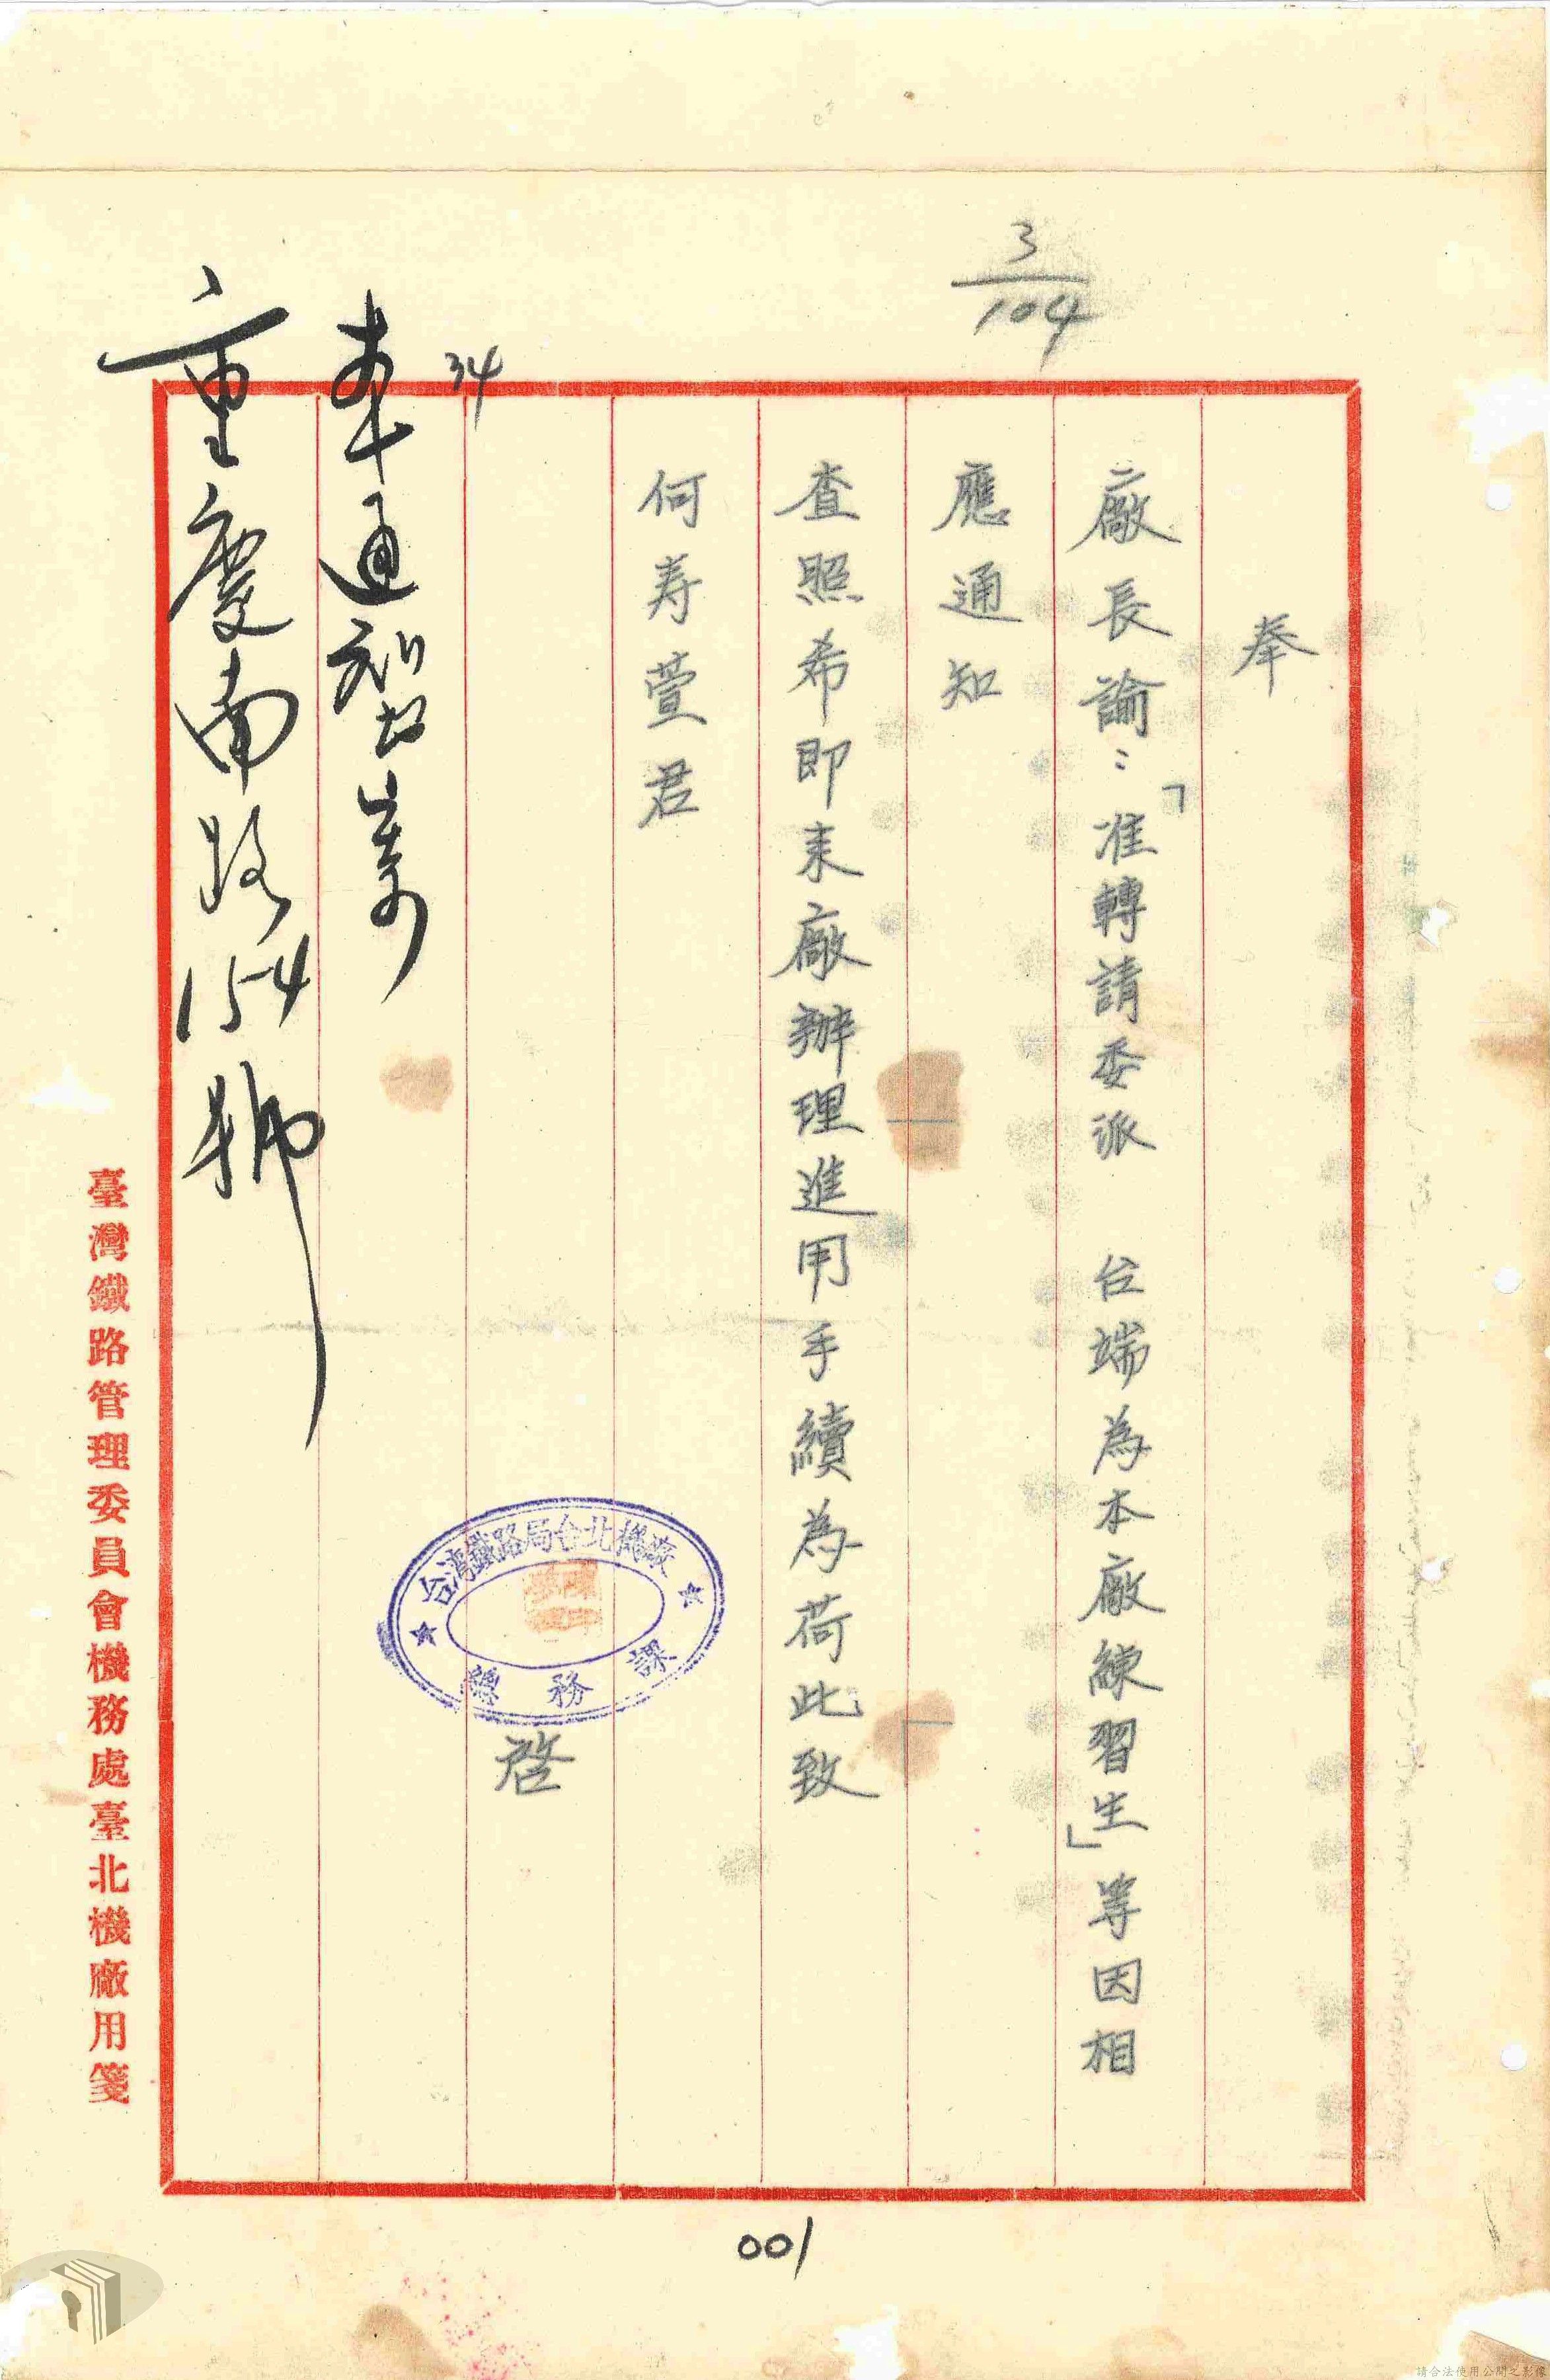 3/104
奉
廠長諭:「准轉請委派 台端為本廠練習生」等因相
應通知
查照希即来廠辦理進用手續為荷此致
何寿萱君
台灣鐵路局台北機廠
務課
啓
34
本通知
重慶南路154號
臺灣鐵路管理委員會機務處臺北機廠用箋
001
請合法使用公開之影像